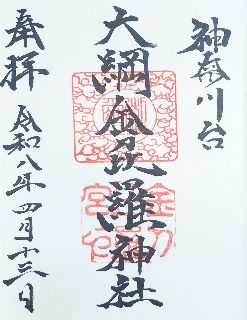 神奈川台
大綱金毘羅神社
奉拝
令和八年四月十三日